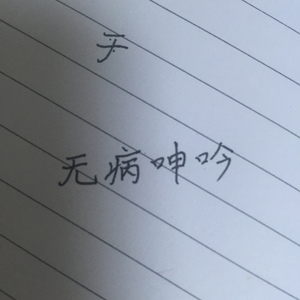 无病呻吟